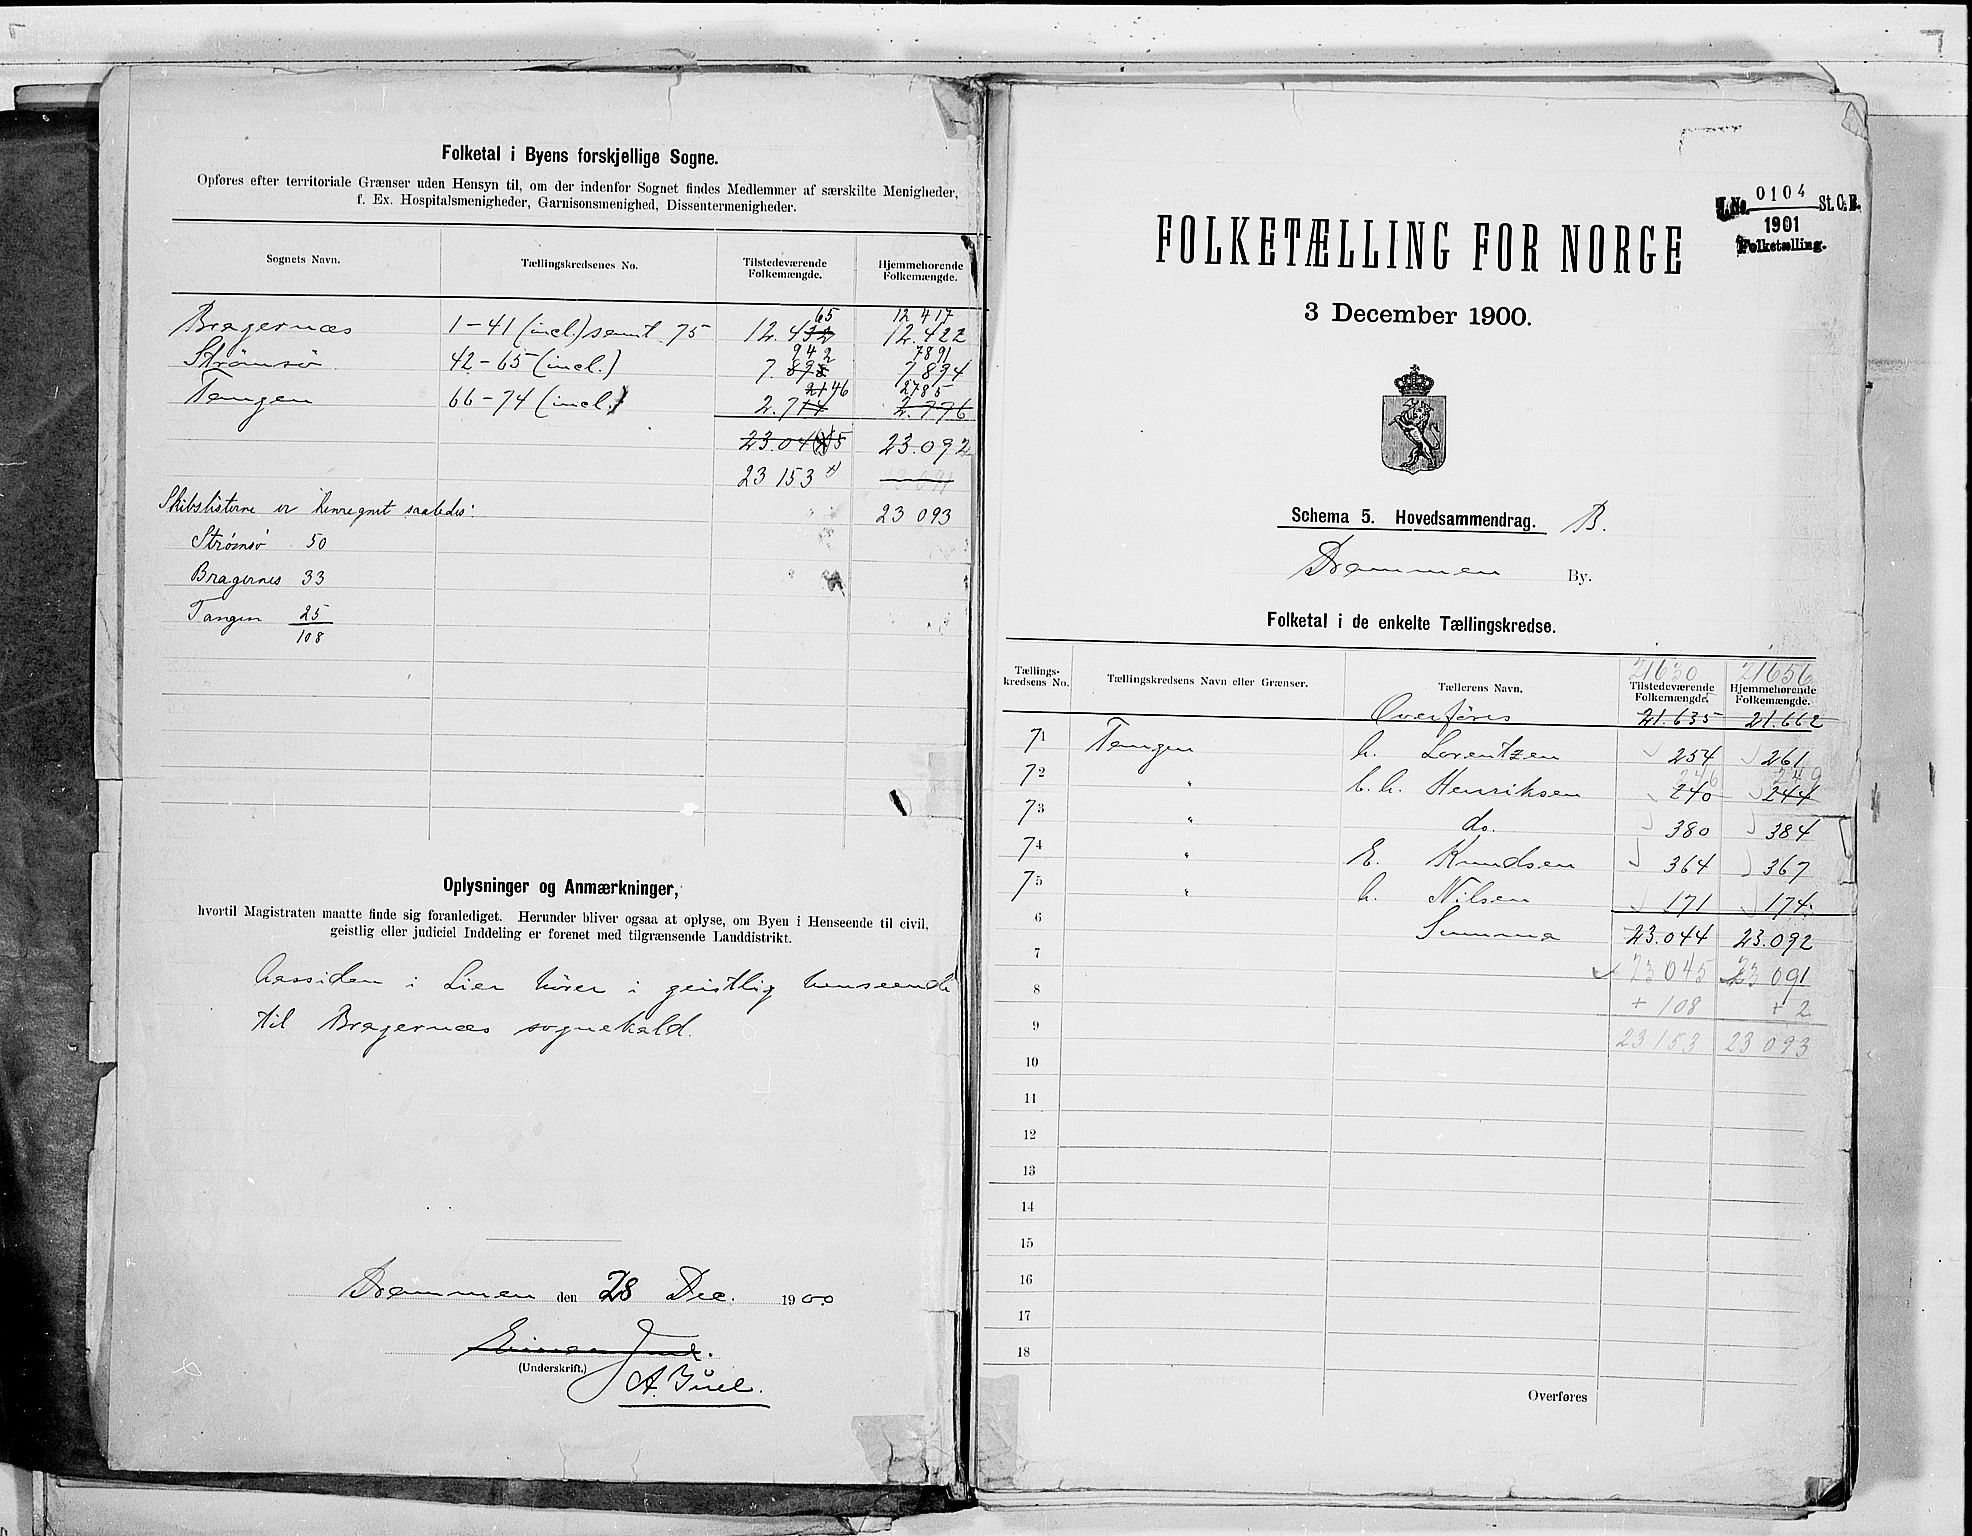 Folketal i Byens forskjellige Sogne.
Opføres efter territoriale Grænser uden Hensyn til, om der indenfor Sognet findes Medlemmer af særskilte Menigheder,
f. Ex. Hospitalsmenigheder, Garnisonsmenighed, Dissentermenigheder.
Sognets Navn. Tællingskredsenes No. Tilstedeværende Folkemængde. Hjemmehørende Folkemængde.
65 12 417
Bragernæs 1-41 (incl.) samt 75 12.432 12.422
942 7891
Strømsø 42-65 (incl.) 7.898 7894
2146 2785
Tangen 66-74 (incl.) 2.714 2.776
23.04 23.092
23 153
Skibslisterne er henregnet saaledes: 23 093
Strømsø 50
Bragernes 33
Tangen 25
108
Oplysninger og Anmærkninger,
hvortil Magistraten maatte finde sig foranlediget. Herunder bliver ogsaa at oplyse, om Byen i Henseende til civil,
geistlig eller judiciel Inddeling er forenet med tilgrænsende Landdistrikt.
i Lier hører i geistlig henseende
til Bragernæs sognekald.
Drammen den 28 Dec. 1900
(Underskrift.)
A. Juel.
0104
J.No. St. C. B.
1901
Folketælling.
FOLKETÆLLING FOR NORGE
3 December 1900.
Schema 5. Hovedsammendrag. B.
Drammen By.
Folketal i de enkelte Tællingskredse.
21630 21656
Tællings-kredsens No. Tællingskredsens Navn eller Grænser. Tællerens Navn. Tilstedeværende Folkemængde. Hjemmehørende Folkemængde.
Overføres 21.635 21.662
71 Tangen Lorentzen 254 261
246 249
72 " Henriksen 240 244
73 " do. 380 384
74 " E. Knudsen 364 367
75 " Nilsen 171 174
6 Summa 23.044 23.092
7 23 045 23 091
8 + 108 + 2
9 23 153 23 093
10
11
12
13
14
15
16
17
18
Overføres